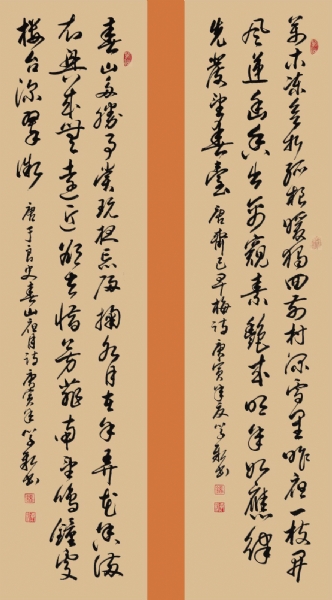 萬木凍欲折孤根暖獨回前村深雪里昨夜一枝開
風遞幽香出禽窺素艷來明年如應律
先發望春臺 唐齊己早梅詩 庚寅年夏 書
春山多勝事賞玩夜忘歸掬水月在手弄花香滿
衣興來無遠近欲去惜芳菲南望鳴鐘處
樓台深翠微 唐于良史春山夜月詩 庚寅年 書